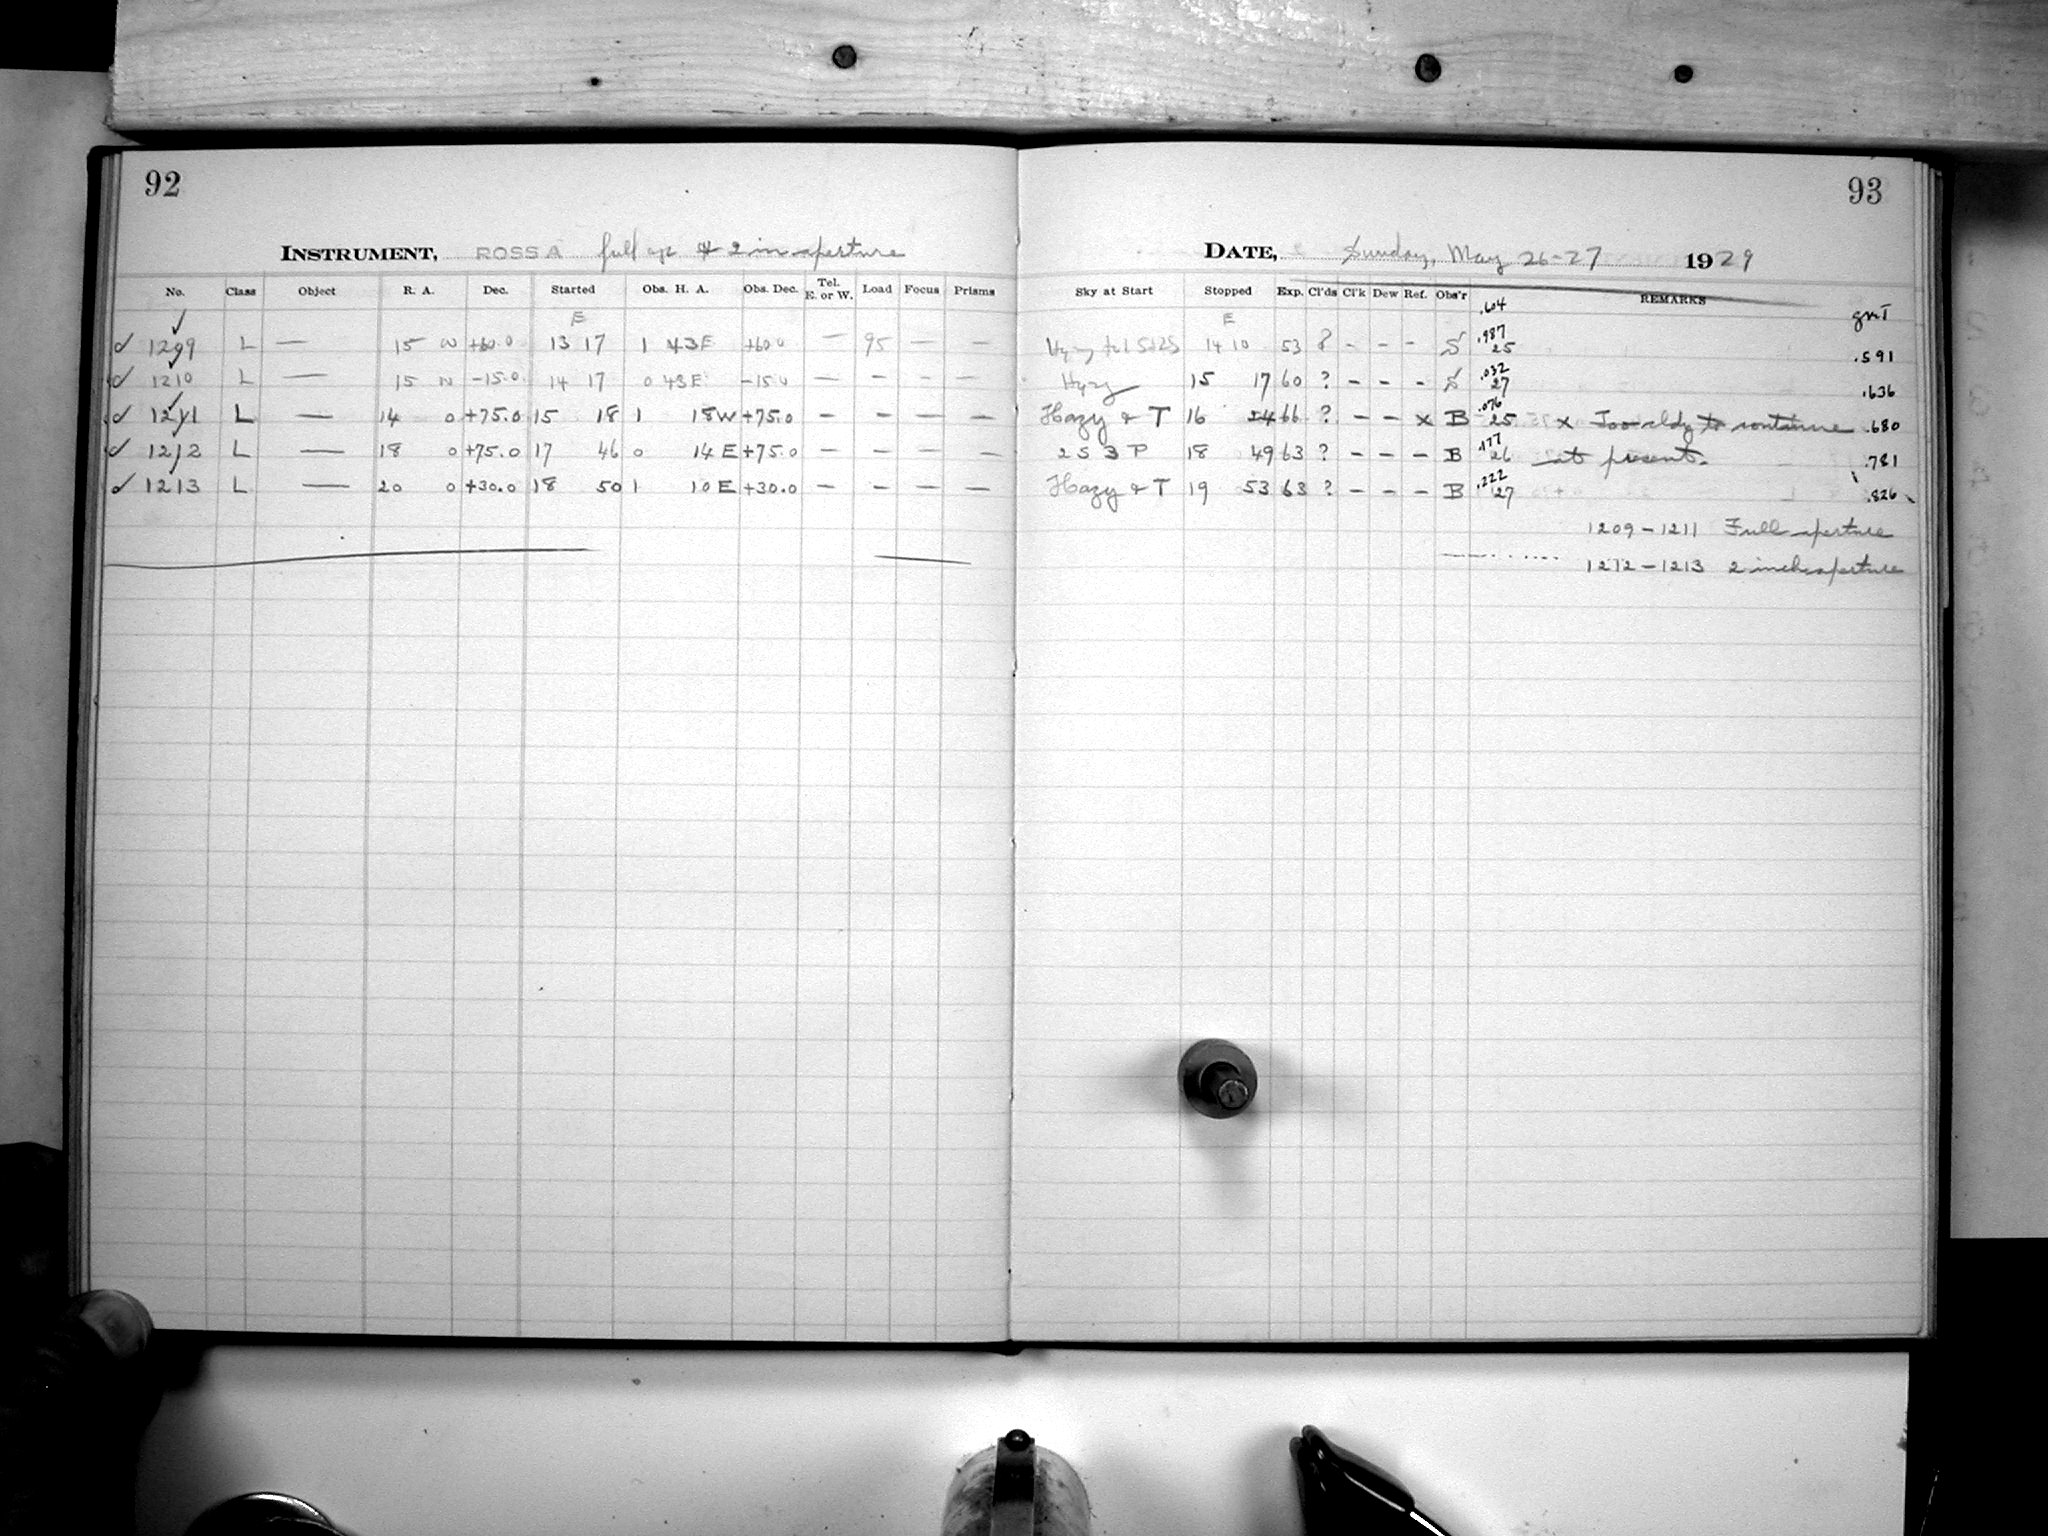 92
93
INSTRUMENT, ROSS A full ap & 2 in aperture
DATE, Sunday, May 26-27 1929
No. Class Object R. A. Dec. Started Obs. H. A. Obs. Dec. Tel. E. or W. Load Focus Prisms Sky at Start Stopped Exp. Cl'ds Cl'k Dew Ref. Obs'r REMARKS
.604 GMT
E E
✓ 1209 L — 15 +60.0 13 17 1 43E +60.0 — 95 — — 14 10 53 ? - - - S .987 25 .591
✓ 1210 L — 15 -15.0 14 17 0 43E -15.0 — - - — Hazy 15 17 60 ? - - - S .032 27 .636
✓ 1211 L — 14 0 +75.0 15 18 1 18W +75.0 - - - — Hazy & T 16 24 66 ? - - x B .076 25 x Too cldy to continue .680
✓ 1212 L — 18 0 +75.0 17 46 0 14 E +75.0 - - - — 2 S 3 P 18 49 63 ? - - - B .177 26 at present. .781
✓ 1213 L — 20 0 +30.0 18 50 1 10 E +30.0 - - - — Hazy & T 19 53 63 ? - - - B .222 27 .826
1209-1211 Full aperture
1212-1213 2 inch aperture